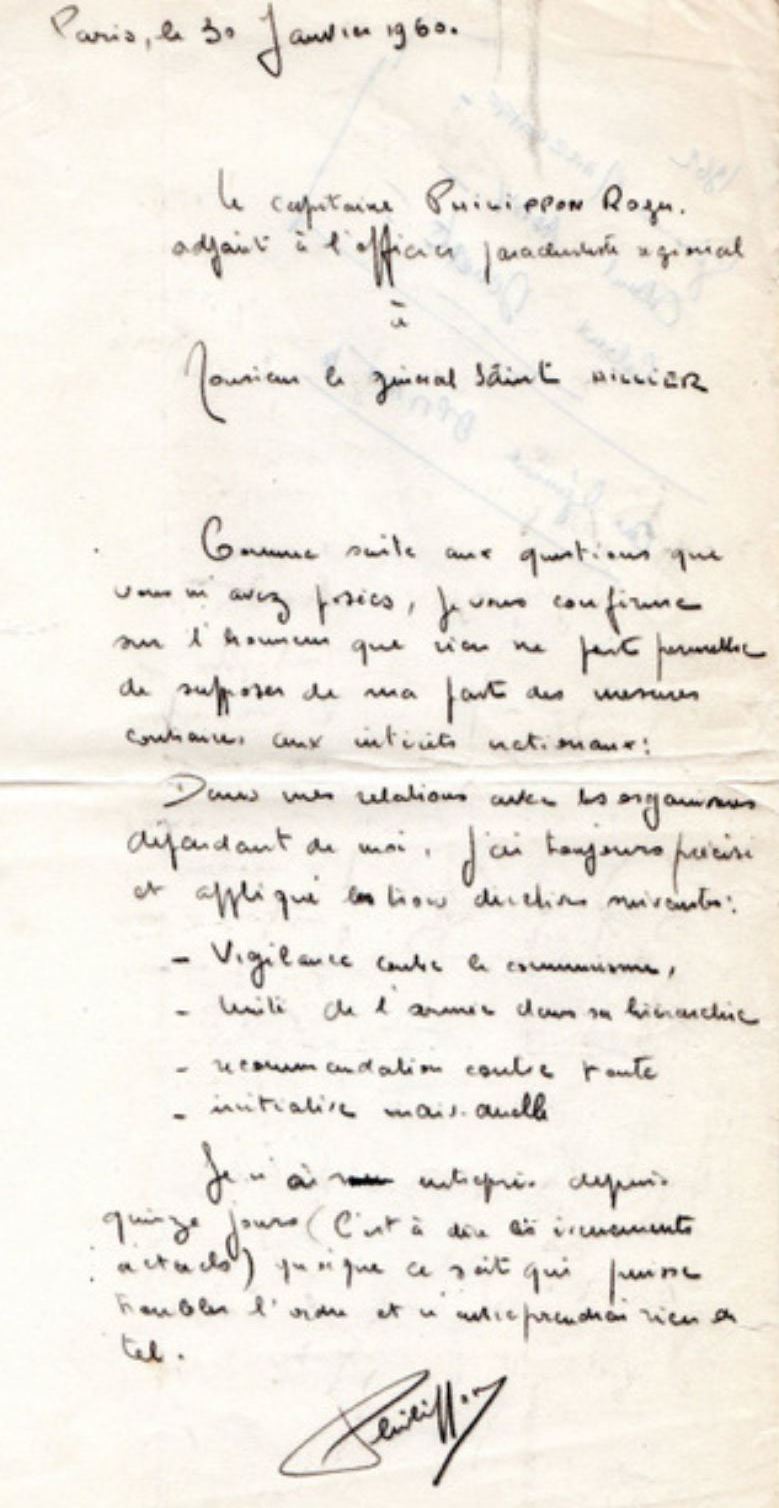 Paris, le 30 Janvier 1960.
Le capitaine PHILIPPON Roger.
adjoint à l'officier parachutiste régional
à
Monsieur le général Saint HILLIER
Comme suite aux questions que
vous m'avez posées, je vous confirme
sur l'honneur que rien ne peut permettre
de supposer de ma part des mesures
contraires aux intérêts nationaux:
Dans mes relations avec les organismes
dépendant de moi, j'ai toujours précisé
et appliqué les trois directives suivantes:
- Vigilance contre le communisme,
- Unité de l'armée dans sa hiérarchie
- recommandation contre toute
- initiative
Je n'ai entrepris depuis
quinze jours (c'est à dire les évènements
actuels) quoique ce soit qui puisse
troubler l'ordre et n'entreprendrai rien de
tel.
Philippon